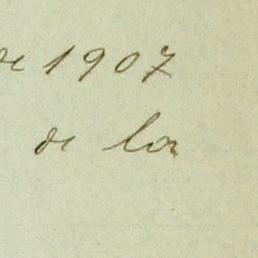 de 1907
de la